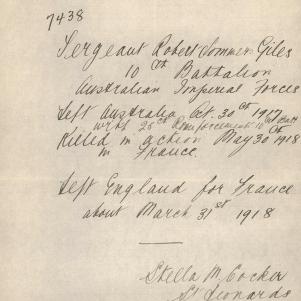 7438
Sergeant Robert Sommers Giles
10th Battalion
Australian Imperial Forces
Left Australia Oct. 30th 1917
with 25th Reinforcement 10th Batt
Killed in action May 30th 1918
in France
Left England for France
about March 31st 1918
Stella M. Cocker
St Leonards